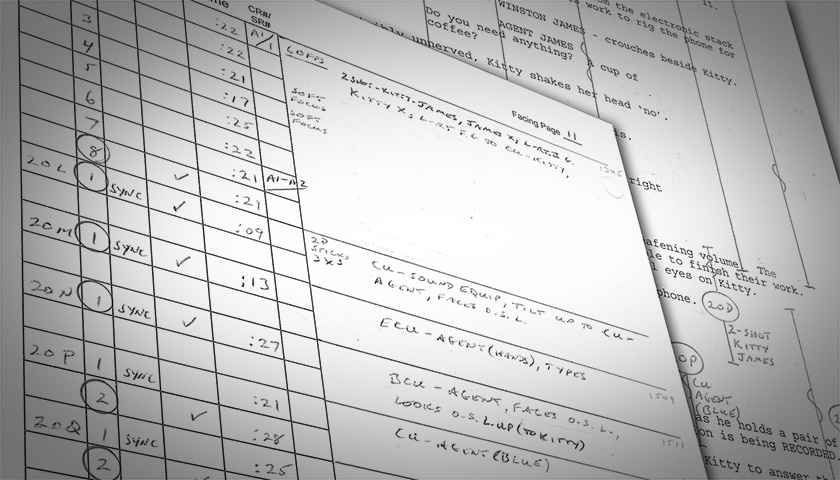 CR#/
SR#
3
:22
A1/1
60FPS
4
:22
5
:21
6
:17
SOFT
FOCUS
7
:25
SOFT
FOCUS
8
:22
20L
1
SYNC
:21
A1-A2
:21
20M
1
SYNC
:09
20N
1
SYNC
:13
20P
1
SYNC
:27
2
:21
20Q
1
SYNC
:28
2
:25
Facing Page 11
2 SHOT-KITTY-JAMES, JAMES
KITTY XS L-RT F.G TO CU-KITTY,
2D
STICKS
3XS
CU-SOUND EQUIP, TILT UP TO CU-
AGENT, FACES O.S.L.
ECU-AGENT (HANDS), TYPES
1509
BCU-AGENT, FACES O.S.L.,
LOOKS O.S.L. UP (TO KITTY)
1511
CU-AGENT (BLUE)
om the electronic stack
work to rig the phone for
11.
WINSTON JAMES - crouches beside Kitty.
Do you need anything?
coffee?
AGENT JAMES
A cup of
unnerved, Kitty shakes her head 'no'.
is.
right
afening volume. The
le to finish their work.
l eyes on Kitty.
phone.
20P
2-SHOT
KITTY
JAMES
CU
AGENT
(BLUE)
as he holds a pair of
on is being RECORDED.
Kitty to answer th